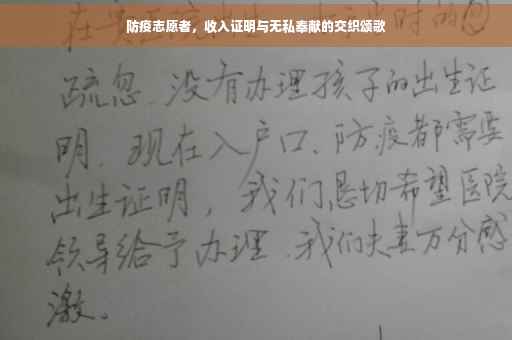 防疫志愿者，收入证明与无私奉献的交织颂歌
时的
疏忽、没有办理孩子的出生证
明。现在入户口、防疫都需要
出生证明，我们恳切希望医院
领导给予办理、我们夫妻万分感
激。